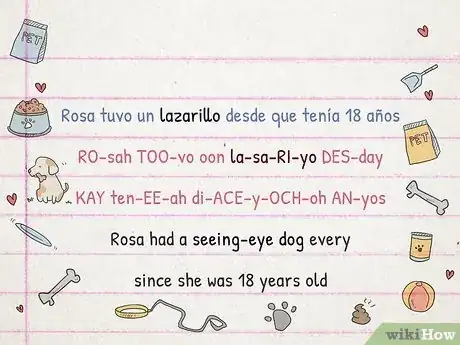 PET
Rosa tuvo un lazarillo desde que tenía 18 años
PET
RO-sah TOO-vo oon la-sa-RI-yo DES-day
KAY ten-EE-ah di-ACE-y-OCH-oh AN-yos
Rosa had a seeing-eye dog every
since she was 18 years old
wikiHow